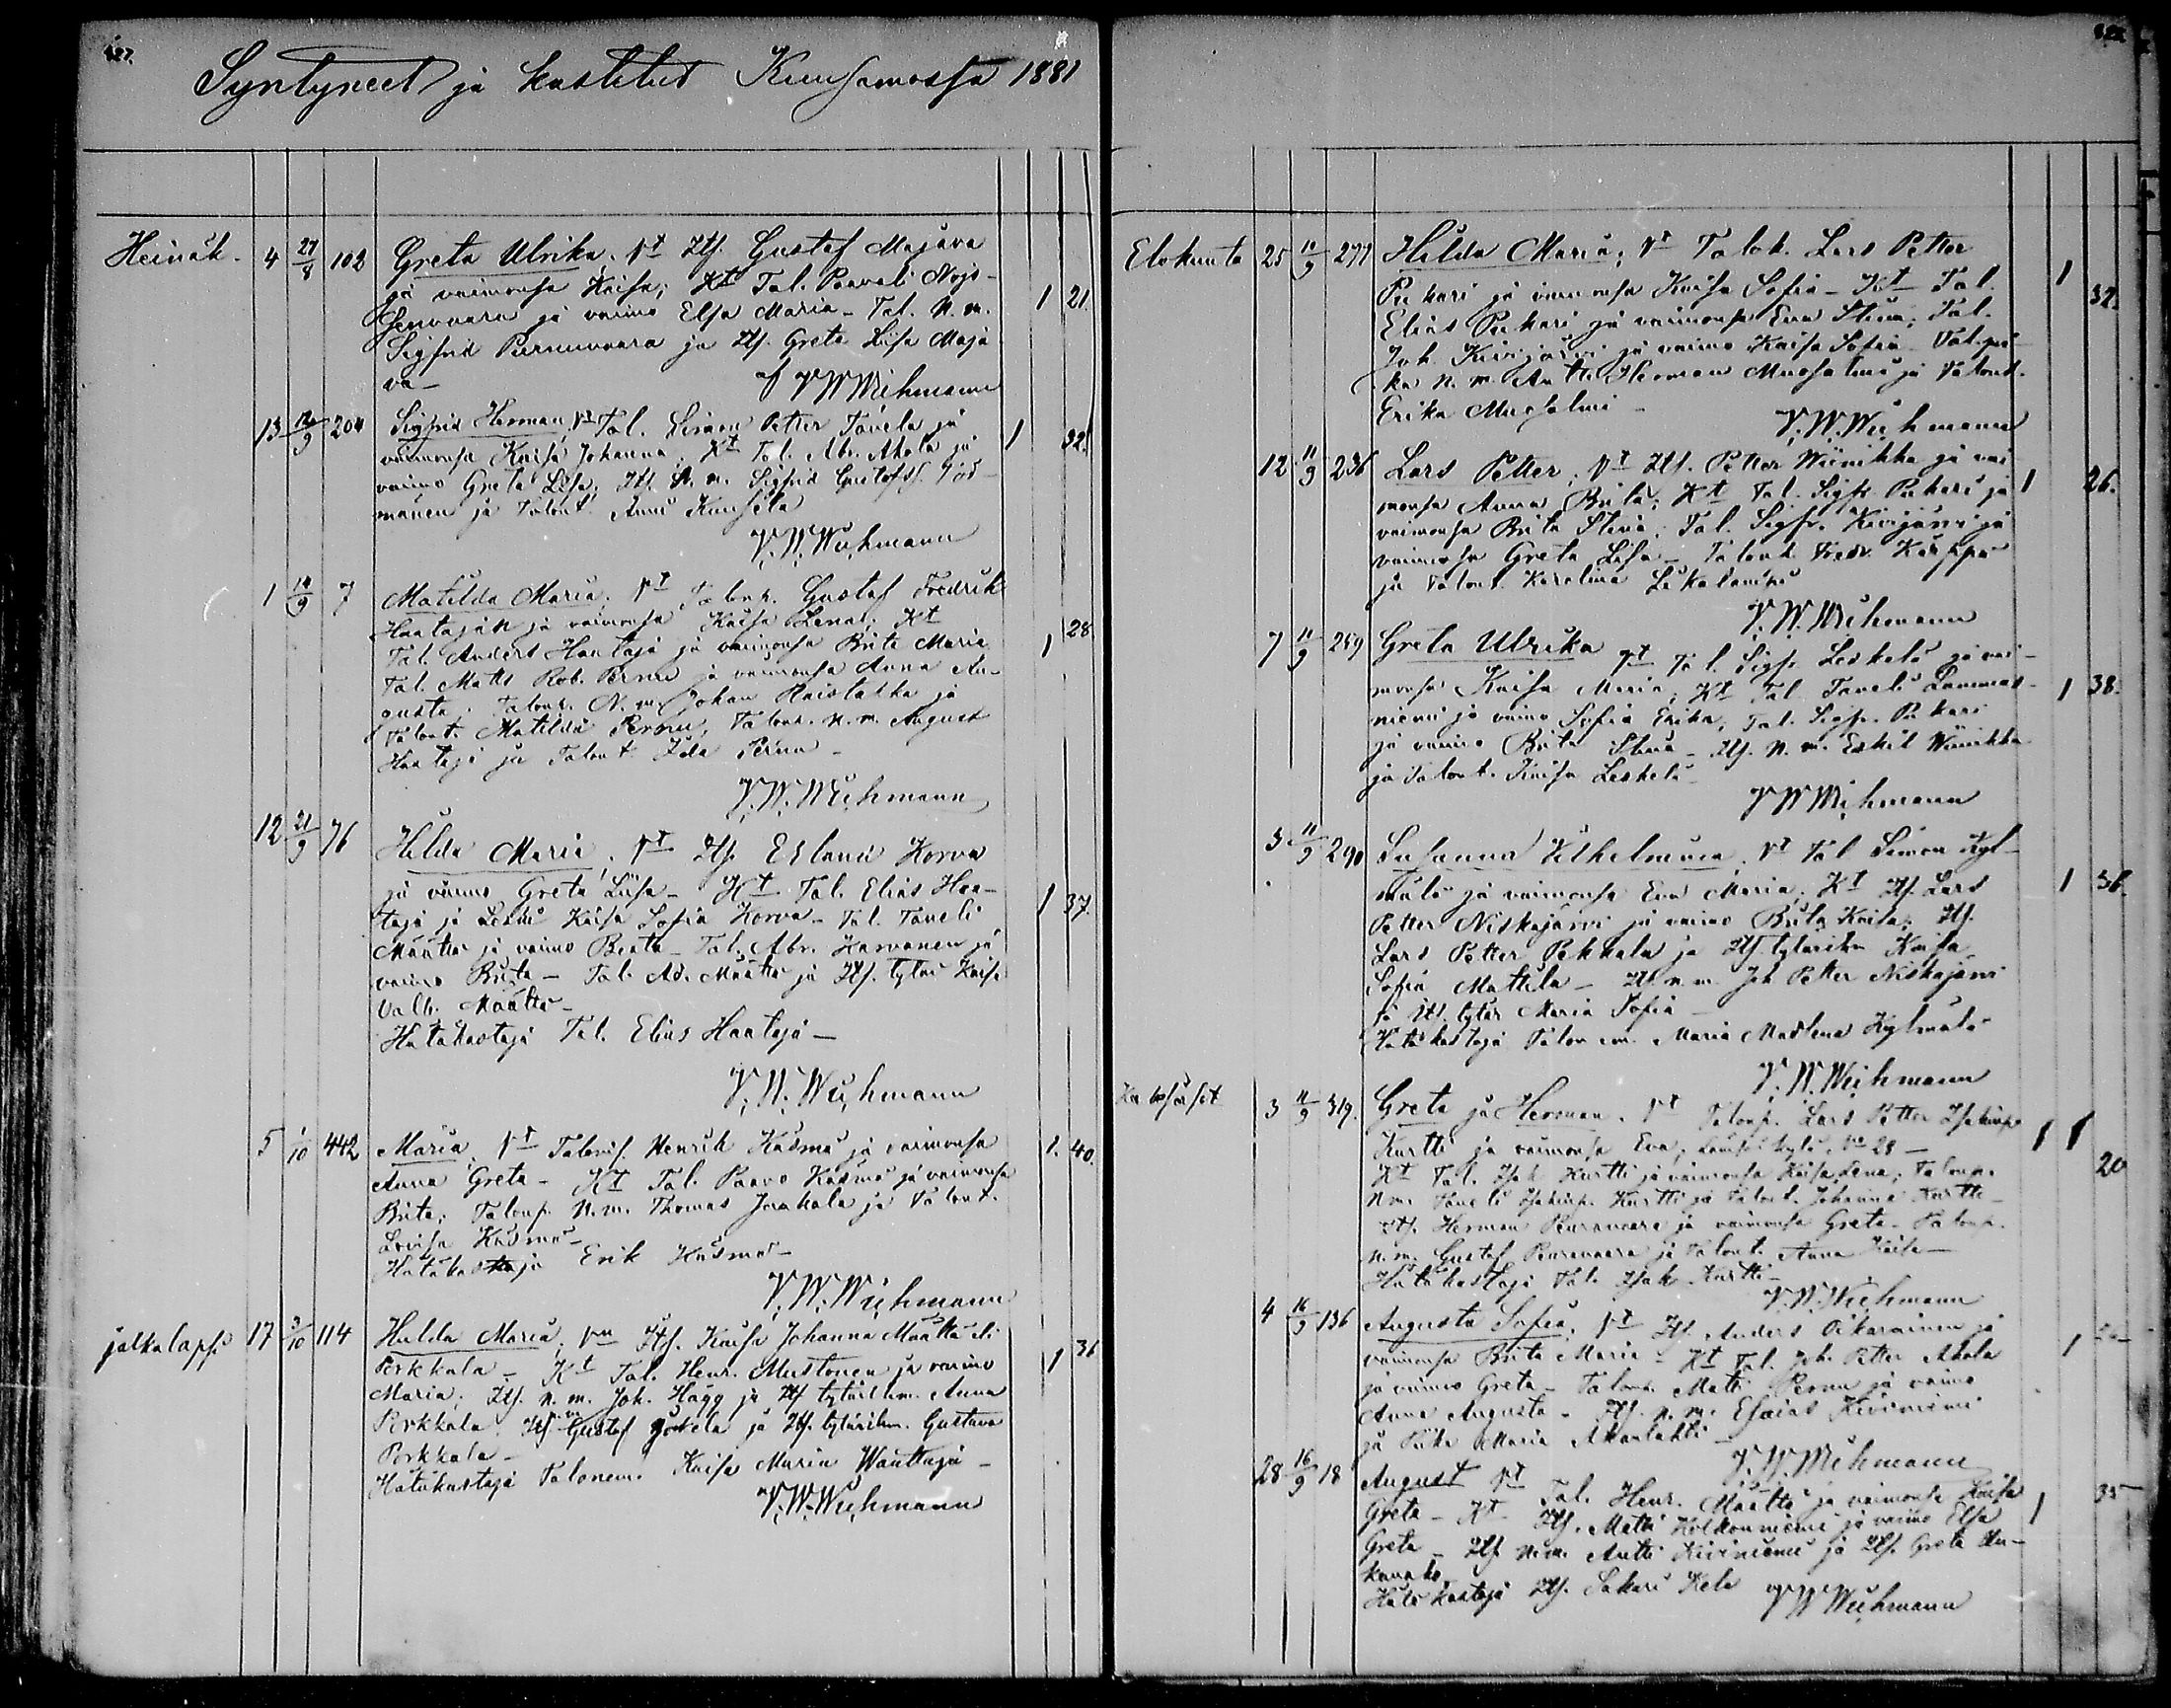 427.
Syntyneet ja kastetut Kuusamossa 1881
Heinäk. 4 27/8 102 Greta Ulrika, Vt Itf. Gustaf Majava
ja vaimonsa Kaisa; Kt Tal. Paavali Nojo-
senvaara ja vaimo Elsa Maria - Tal. N. m. 1 21.
Sigfrid Purnuvaara ja Itf. Greta Lisa Maja
va - af V W Wichmann
13 12/9 204 Sigfrid Herman, Vt Tal. Simon Petter Tavela ja 1 32.
vaimonsa Kaisa Johanna, Kt Tal. Abr. Ahola ja
vaimo Greta Lisa; Itf. N. m. Sigfrid Gustafss.
ja Talont. Anni Kuusela
V. W. Wichmann
1 14/9 7 Matilda Maria, Vt Talonp. Gustaf Fredrik
Haatajan ja vaimonsa Kaisa Lena; Kt 28.
Tal. Anders Haataja ja vaimonsa Brita Maria 1
Tal. Matts Rob. Pernu ja vaimonsa Anna Au-
gusta. Talonp. N. m. Johan Raistakka ja
Talont. Matilda Pernu, Talonp. n. m. August
Haataja ja Talont. Ida Pernu -
V. W. Wichmann
12 21/9 76 Hilda Maria, Vt Itf. Esland Korva
ja vaimo Greta Liisa - Kt Tal. Elias Haa-
taja ja Leski Kaisa Sofia Korva - Tal. Taneli 1 37.
Määttä ja vaimo Beata - Tal. Abr. Karvonen ja
vaimo Brita - Tal. Ad. Määttä ja Itf. tytär Kaisa
Valb. Määttä -
Hätäkastaja Tal. Elias Haataja -
V. W. Wichmann
5 1/10 442 Maria, Vt Talonis. Henrik Käsmä ja vaimonsa 1. 40.
Anna Greta - Kt Tal. Paavo Käsmä ja vaimonsa
Brita; Talonp. N. m. Thomas Jaakola ja Talont.
Lovisa Käsmä -
Hätäkastaja Erik Käsmä -
V. W. Wichmann
jalkalapsi 17 3/10 114 Hulda Maria, Vn Itf. Kaisa Johanna Määttä eli 36
Porkkala - Kt Tal. Henr. Mustonen ja vaimo 1
Maria; Itf. n. m. Joh. Hägg ja Itf tytärihm. Anna
Porkkala. Itf Gustaf ja Itf. tytärihm. Gustava
Porkkala -
Hätäkastaja Talonem. Kaisa Maria Wanttaja -
V. W. Wichmann
Elokuuta 25 10/9 277 Hilda Maria; Vt Talok. Lars Petter 1
Pukari ja vaimonsa Kaisa Sofia - Kt Tal. 32.
Elias Pukari ja vaimonsa Eva Stina; Tal.
Joh. Kivijärvi ja vaimo Kaisa Sofia - Tal. poi
ka n. m. Antti Herman Mursalmi ja Talont.
Erika Mursalmi -
V. W. Wichmann
12 11/9 236 Lars Petter, Vt Itf. Petter Winikka ja vai
monsa Anna Brita; Kt Tal. Sigfr. Pukari ja 1 26.
vaimonsa Brita Stina; Tal. Sigfr. Kivijärvi ja
vaimonsa Greta Lisa - Talont. Fredr. Karppa
ja Talont. Karolina
V. W. Wichmann
7 11/9 259 Greta Ulrika Vt Tal. Sigfr. Leskelä ja vai-
monsa Kaisa Maria; Kt Tal. Taneli Lammas- 1 38.
niemi ja vaimo Sofia Erika, Tal. Sigfr. Pukari
ja vaimo Brita Stina - Itf. n. m. Eskil Winikka
ja Talont. Kaisa Leskelä -
V W Wichmann
3 11/9 290 Susanna Wilhelmina, Vt Tal Simon Kyl-
mälä ja vaimonsa Eva Maria, Kt Itf. Lars 1 36.
Petter Niskajärvi ja vaimo Brita Kaisa; Itf.
Lars Petter Pekkala ja Itf. tytärihm Kaisa
Sofia Mattila - Itf. n. m. Joh Petter Niskajärvi
ja Itf. tytär Maria Sofia -
Hätäkastaja Talon em. Maria Madlena Kylmälä
V. W. Wichmann
Kaksoiset 3 11/9 319. Greta ja Herman, Vt Talonp. Lars Petter Isakinp.
Kurtti ja vaimonsa Eva, No 28 - 1 1
Kt Tal. Isak Kurtti ja vaimonsa Kaisa Lena; Talonp. 20
N. m. Taneli Isakinp. Kurtti ja Talont. Johanna Kurtti -
Itf. Herman Peuravaara ja vaimonsa Greta - Talonp.
n. m. Gustaf Peuravaara ja Talont. Anna Kaisa -
Hätäkastaja Tal. Isak Kurtti -
V. W. Wichmann
4 16/9 136 Augusta Sofia, Vt Itf. Anders Oikarainen ja
vaimonsa Brita Maria - Kt Tal. Joh. Petter Ahola 1
ja vaimo Greta - Talonp. Matti Pernu ja vaimo
Anna Augusta - Itf. n. m. Esaias Kiviniemi
ja Piika Maria Akanlahti -
V. W. Wichmann
28 16/9 18 August Vt Tal. Henr. Määttä ja vaimonsa Kaisa 35
Greta - Kt Itf. Matti Holkonniemi ja vaimo Elsa 1
Greta - Itf. n. m. Antti Kiviniemi ja Itf. Greta
Hätäkastaja Itf. Sakari Kela V W Wichmann